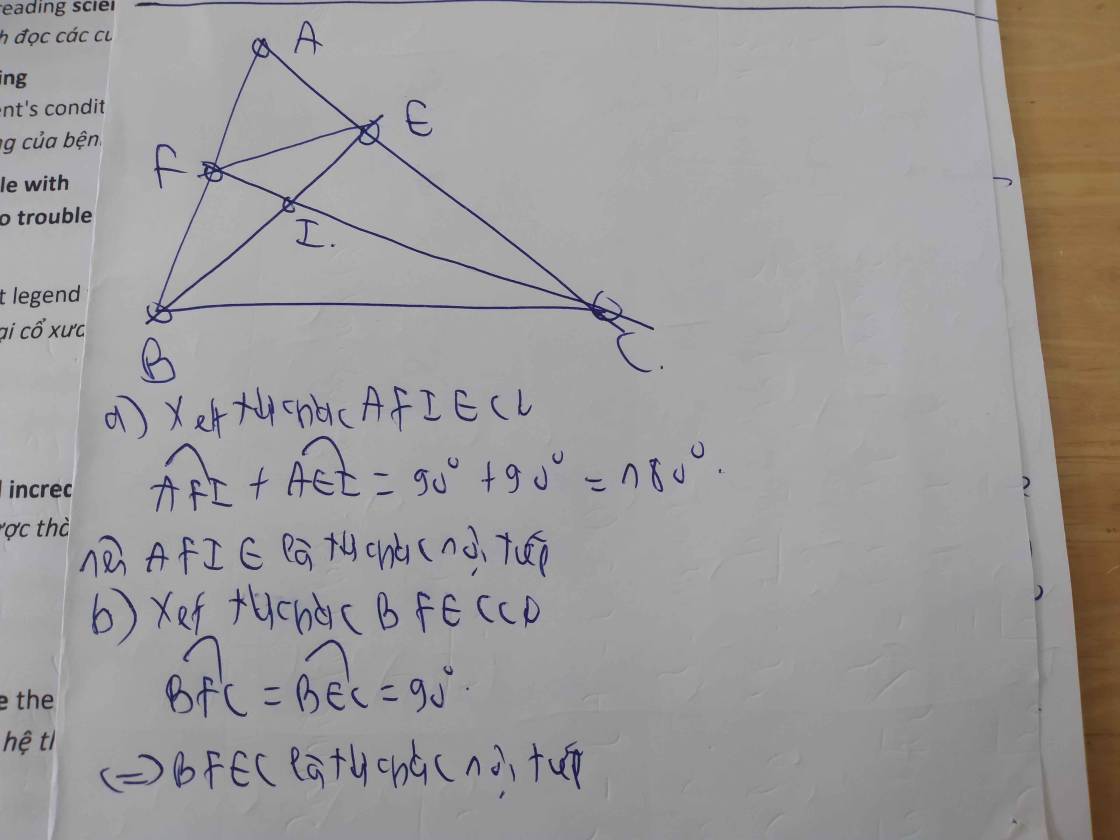 reading scien
h đọc các cu
ing
ent's condit
ng của bện
le with
o trouble
t legend
ại cổ xưa
incred
ược thà
e the
hệ th
A
E
F
I.
B
C.
a) Xét tứ giác AFIE có
AFI + AEI = 90° + 90° = 180°.
nên AFIE là tứ giác nội tiếp
b) Xét tứ giác BFEC có
BFC = BEC = 90°.
(=) BFEC là tứ giác nội tiếp